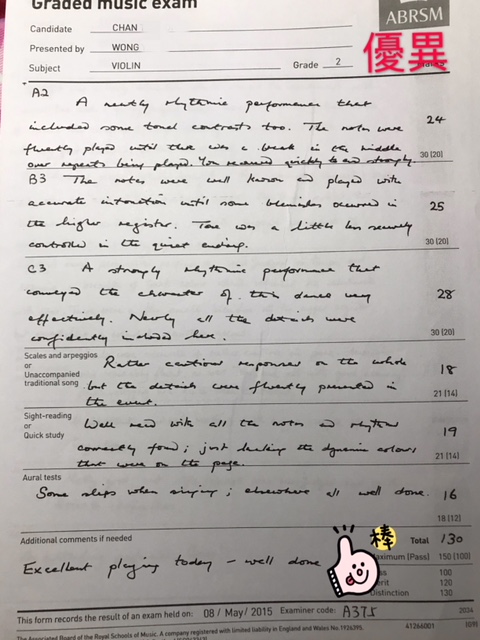 Graded music exam
ABRSM
Candidate CHAN
Presented by WONG
Subject VIOLIN Grade 2
優異
A2
A neatly rhythmic performance that
included some tonal contrasts too. The notes were
fluently played until there was a break in the middle
over repeats being played. You recovered quickly to end strongly.
24
30 (20)
B3 The notes were well known and played with
accurate intonation until some blemishes occurred in
the higher register. Tone was a little less securely
controlled in the quiet ending.
25
30 (20)
C3 A strongly rhythmic performance that
conveyed the character of this dance very
effectively. Nearly all the details were
confidently included here.
28
30 (20)
Scales and arpeggios
or
Unaccompanied
traditional song
Rather cautious responses on the whole
but the details were fluently presented in
the event.
18
21 (14)
Sight-reading
or
Quick study
Well read with all the notes and rhythm
correctly found; just lacking the dynamic colours
that were on the page.
19
21 (14)
Aural tests
Some slips when singing; elsewhere all well done.
16
18 (12)
Additional comments if needed
Excellent playing today – well done
棒
Total 130
Maximum (Pass) 150 (100)
100
120
Distinction 130
This form records the result of an exam held on: 08 / May / 2015 Examiner code: A375
2034
The Associated Board of the Royal Schools of Music. A company registered with limited liability in England and Wales No. 1926395.
41266001